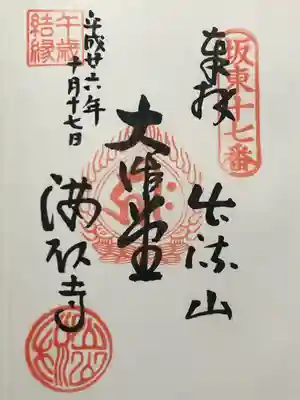 坂東十七番
奉拝
出流山
大御堂
満願寺
平成廿六年
十月十七日
午歳
結縁